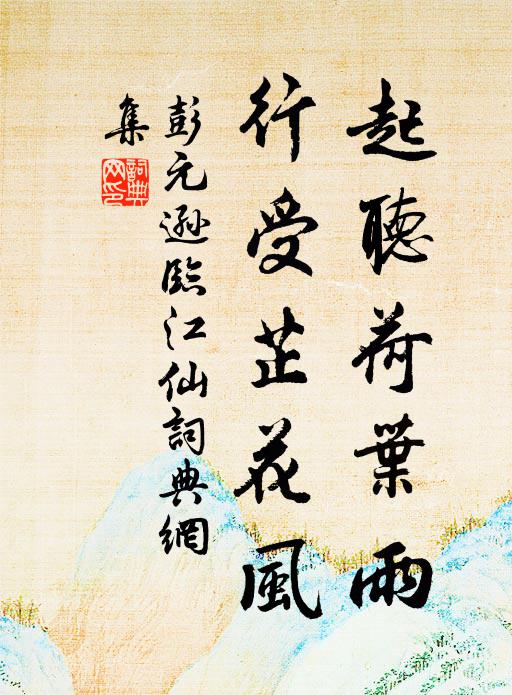 起聽荷葉雨
行受芷花風
彭元遜臨江仙詞典網
集
詞典網印